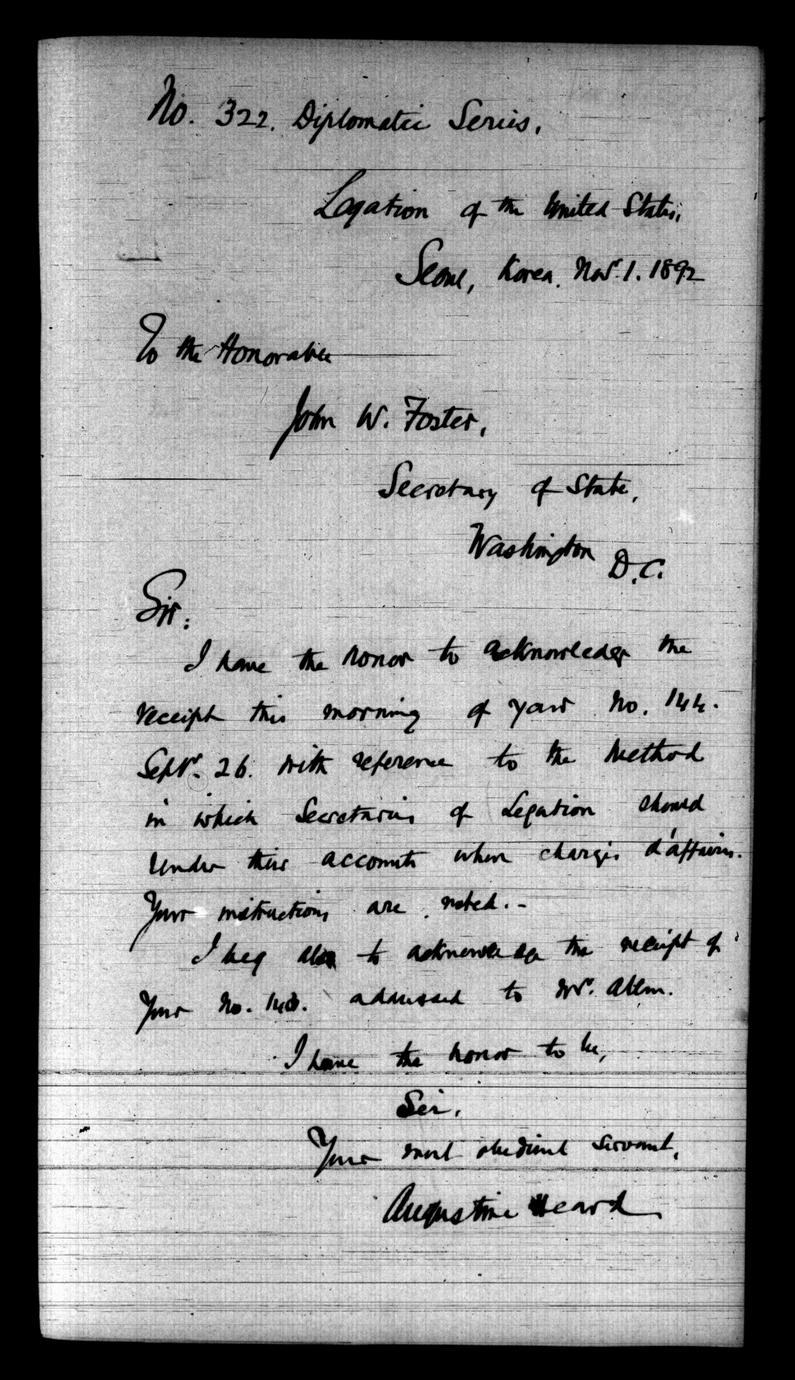 No. 322. Diplomatic Series.
Legation of the United States,
Seoul, Korea. Novr. 1. 1892
To the Honorable
John W. Foster,
Secretary of State,
Washington D.C.
Sir:
I have the honor to acknowledge the
receipt this morning of your No. 144.
Septr. 26. with reference to the method
in which Secretaries of Legation should
render their accounts when chargés d'affaires.
Your instructions are noted.-
I beg also to acknowledge the receipt of
Your No. addressed to Mr. Allen.
I have the honor to be,
Sir,
Your most obedient servant,
Augustine Heard